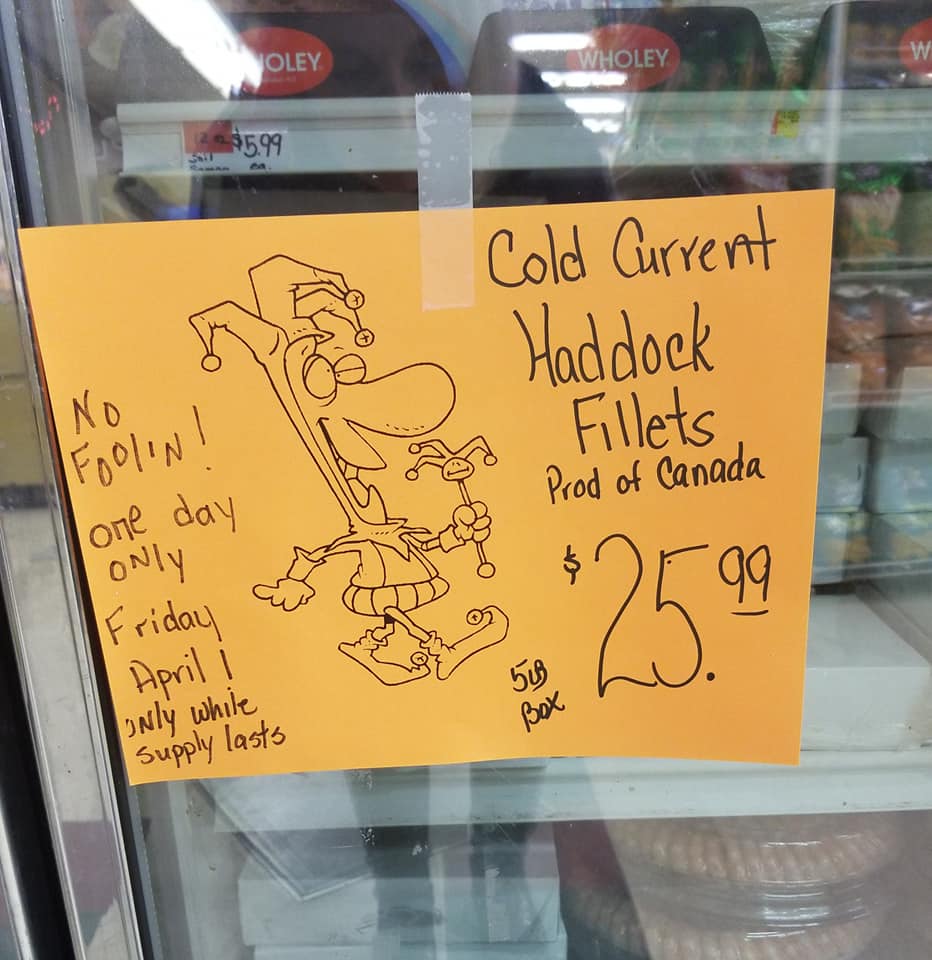 WHOLEY
WHOLEY
W
$5.99
ea.
Cold Current
Haddock
Fillets
Prod of Canada
$25.99
5LB
Box
No
Foolin!
one day
only
Friday
April 1
only while
supply lasts